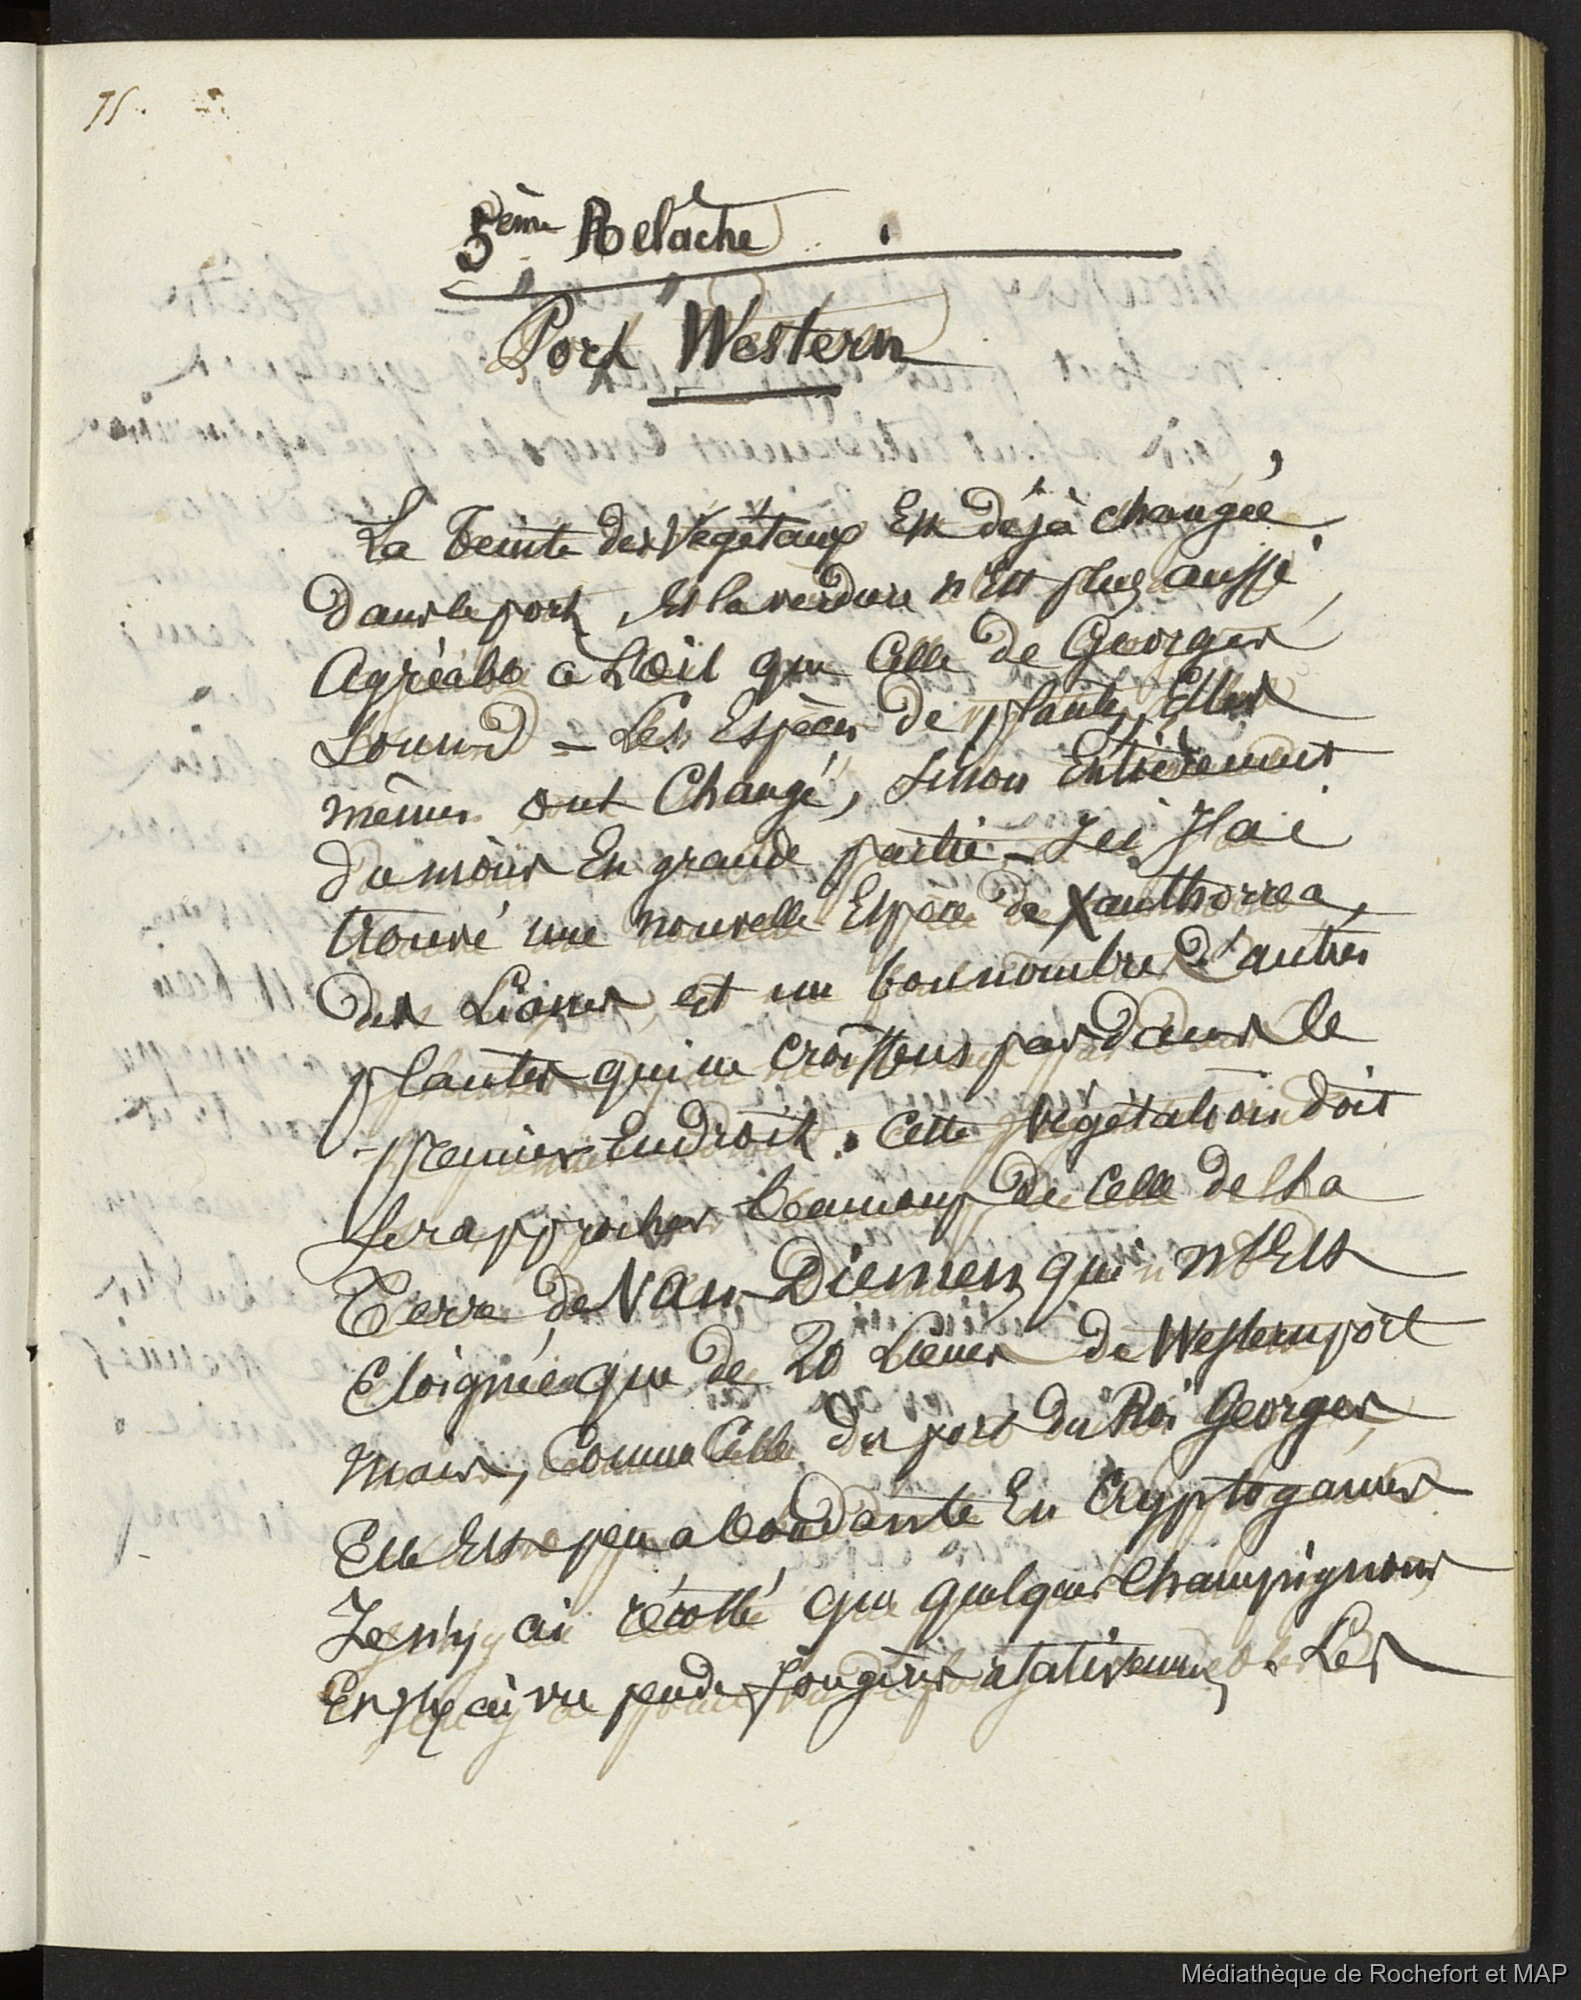 75.
5ème Relâche
Port Western
La teinte des Végétaux Est déjà changée,
dans le port, Et la verdure n'Est plus aussi
Agréable a L'œil que Celle de Georges
Sound = Les Espèces de plantes Elles
mêmes ont Changé, sinon Entièrement
du moins En grande partie - Ici J'ai
trouvé une nouvelle Espèce de Xanthorrea,
des Lianes et un bon nombre d'autres
plantes qui ne croissens pas dans le
premier Endroit. Cette Végétation doit
se rapprocher beaucoup de Celle de la
Terre de Van Diemen, qui n'Est
Eloignée que de 20 Lieues de Westernport
mais, Comme Celle du port du Roi Georges,
Elle Est peu abondante En Cryptogames
Je n'y ai récolté que quelques Champignons
En y ai vu peu de fougères . Les
Médiathèque de Rochefort et MAP